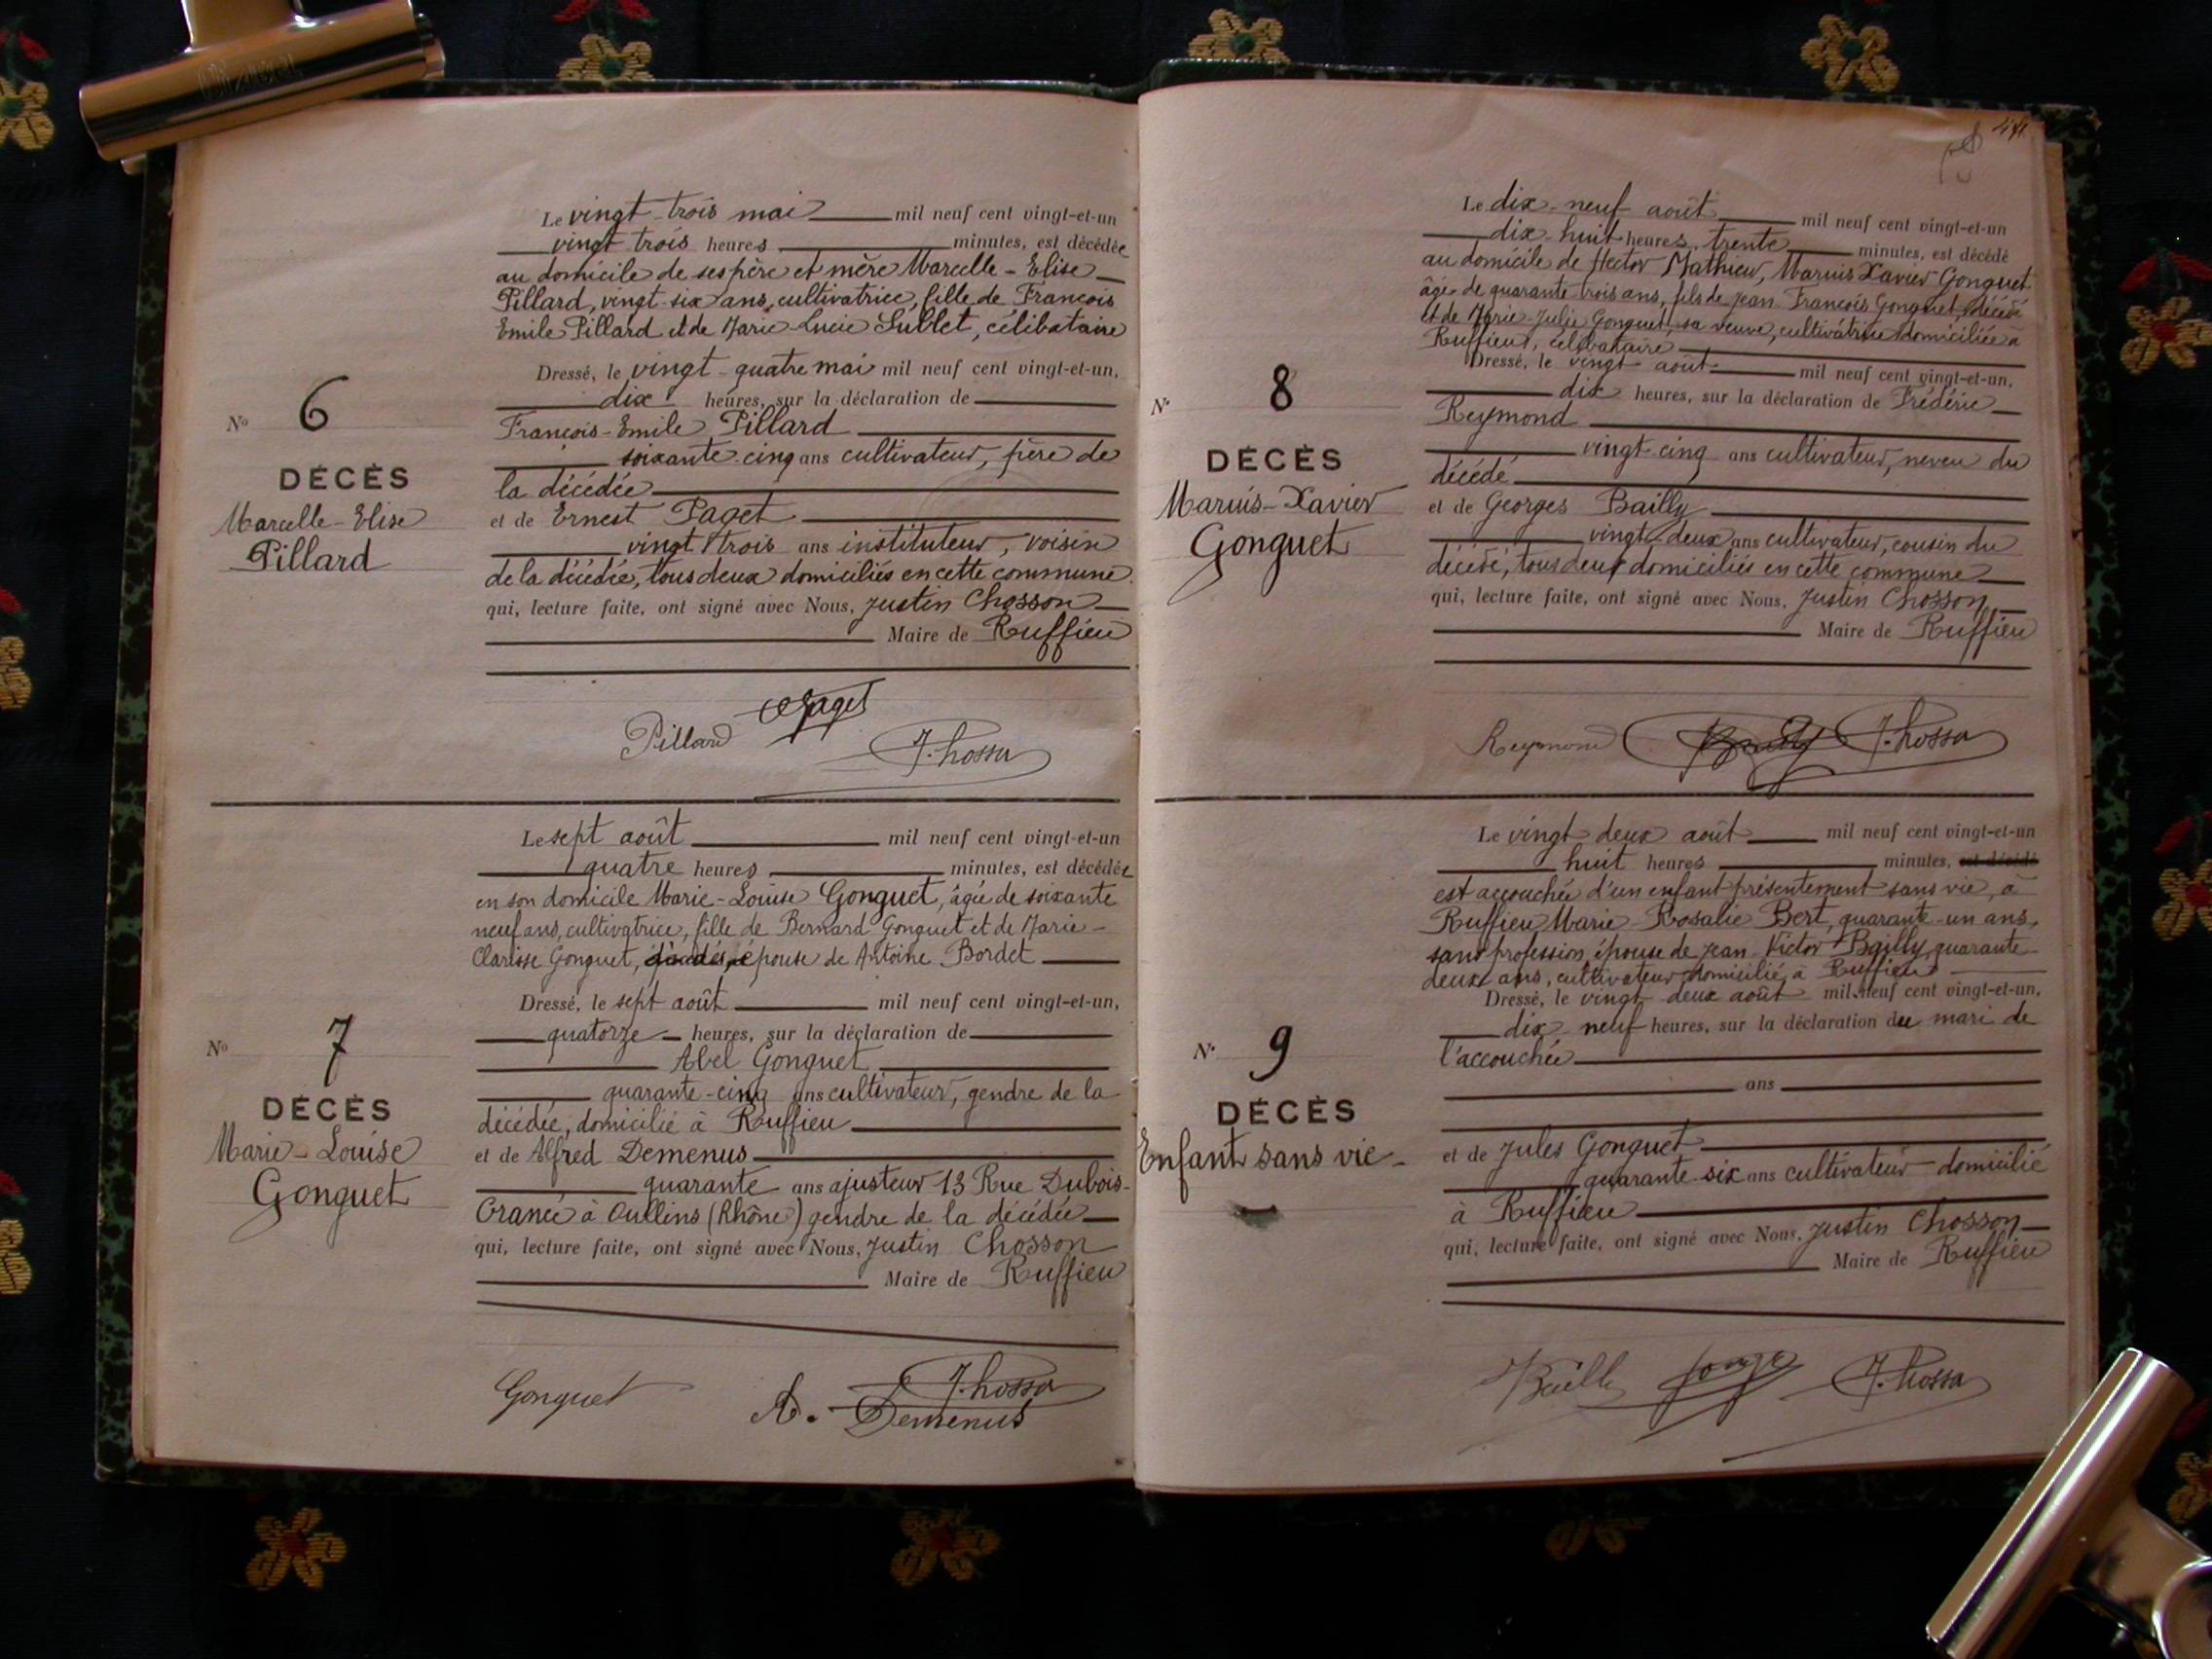 Le vingt-trois mai mil neuf cent vingt-et-un
vingt trois heures minutes, est décédée
au domicile de ses père et mère Marcelle-Elise
Pillard, vingt-six ans, cultivatrice, fille de François
Emile Pillard et de Marie-Lucie Sublet, célibataire
Dressé, le vingt-quatre mai mil neuf cent vingt-et-un,
dix heures, sur la déclaration de
François-Emile Pillard
soixante-cinq ans cultivateur, père de
la décédée
et de Ernest Paget
vingt trois ans instituteur, voisin
de la décédée, tous deux domiciliés en cette commune
qui, lecture faite, ont signé avec Nous, Justin Chosson
Maire de Ruffieu
No 6
DÉCÈS
Marcelle-Elise
Pillard
Pillard Paget
Le sept août mil neuf cent vingt-et-un
quatre heures minutes, est décédée
en son domicile Marie-Louise Gonguet, âgée de soixante
neuf ans, cultivatrice, fille de Bernard Gonguet et de Marie-
Clarisse Gonguet, épouse de Antoine Bordet
Dressé, le sept août mil neuf cent vingt-et-un,
quatorze heures, sur la déclaration de
Abel Gonguet
quarante-cinq ans cultivateur, gendre de la
décédée, domicilié à Ruffieu
et de Alfred Demenus
quarante ans ajusteur 13 Rue Dubois-
Crancé à Oullins (Rhône) gendre de la décédée
qui, lecture faite, ont signé avec Nous, Justin Chosson
Maire de Ruffieu
No 7
DÉCÈS
Marie-Louise
Gonguet
Gonguet A. Demenus
Le dix-neuf août mil neuf cent vingt-et-un
dix-huit heures, trente minutes, est décédé
au domicile de Hector Mathieu, Maruis Xavier Gonguet
âgé de quarante trois ans, fils de Jean François Gonguet, décédé
et de Marie-Julie Gonguet, sa veuve, cultivatrice domiciliée à
Ruffieu, célibataire
Dressé, le vingt août mil neuf cent vingt-et-un,
dix heures, sur la déclaration de Frédéric
Reymond
vingt-cinq ans cultivateur, neveu du
décédé
et de Georges Bailly
vingt-deux ans cultivateur, cousin du
décédé, tous deux domiciliés en cette commune
qui, lecture faite, ont signé avec Nous, Justin Chosson
Maire de Ruffieu
No 8
DÉCÈS
Maruis-Xavier
Gonguet
Reymond
Le vingt deux août mil neuf cent vingt-et-un
huit heures minutes, est décédé
est accouchée d'un enfant présentement sans vie, à
Ruffieu Marie-Rosalie Bert, quarante-un ans,
sans profession, épouse de Jean Victor Bailly, quarante
deux ans, cultivateur domicilié à Ruffieu
Dressé, le vingt deux août mil neuf cent vingt-et-un,
dix neuf heures, sur la déclaration du mari de
l'accouchée
ans
et de Jules Gonguet
quarante-six ans cultivateur domicilié
à Ruffieu
qui, lecture faite, ont signé avec Nous, Justin Chosson
Maire de Ruffieu
No 9
DÉCÈS
Enfant sans vie